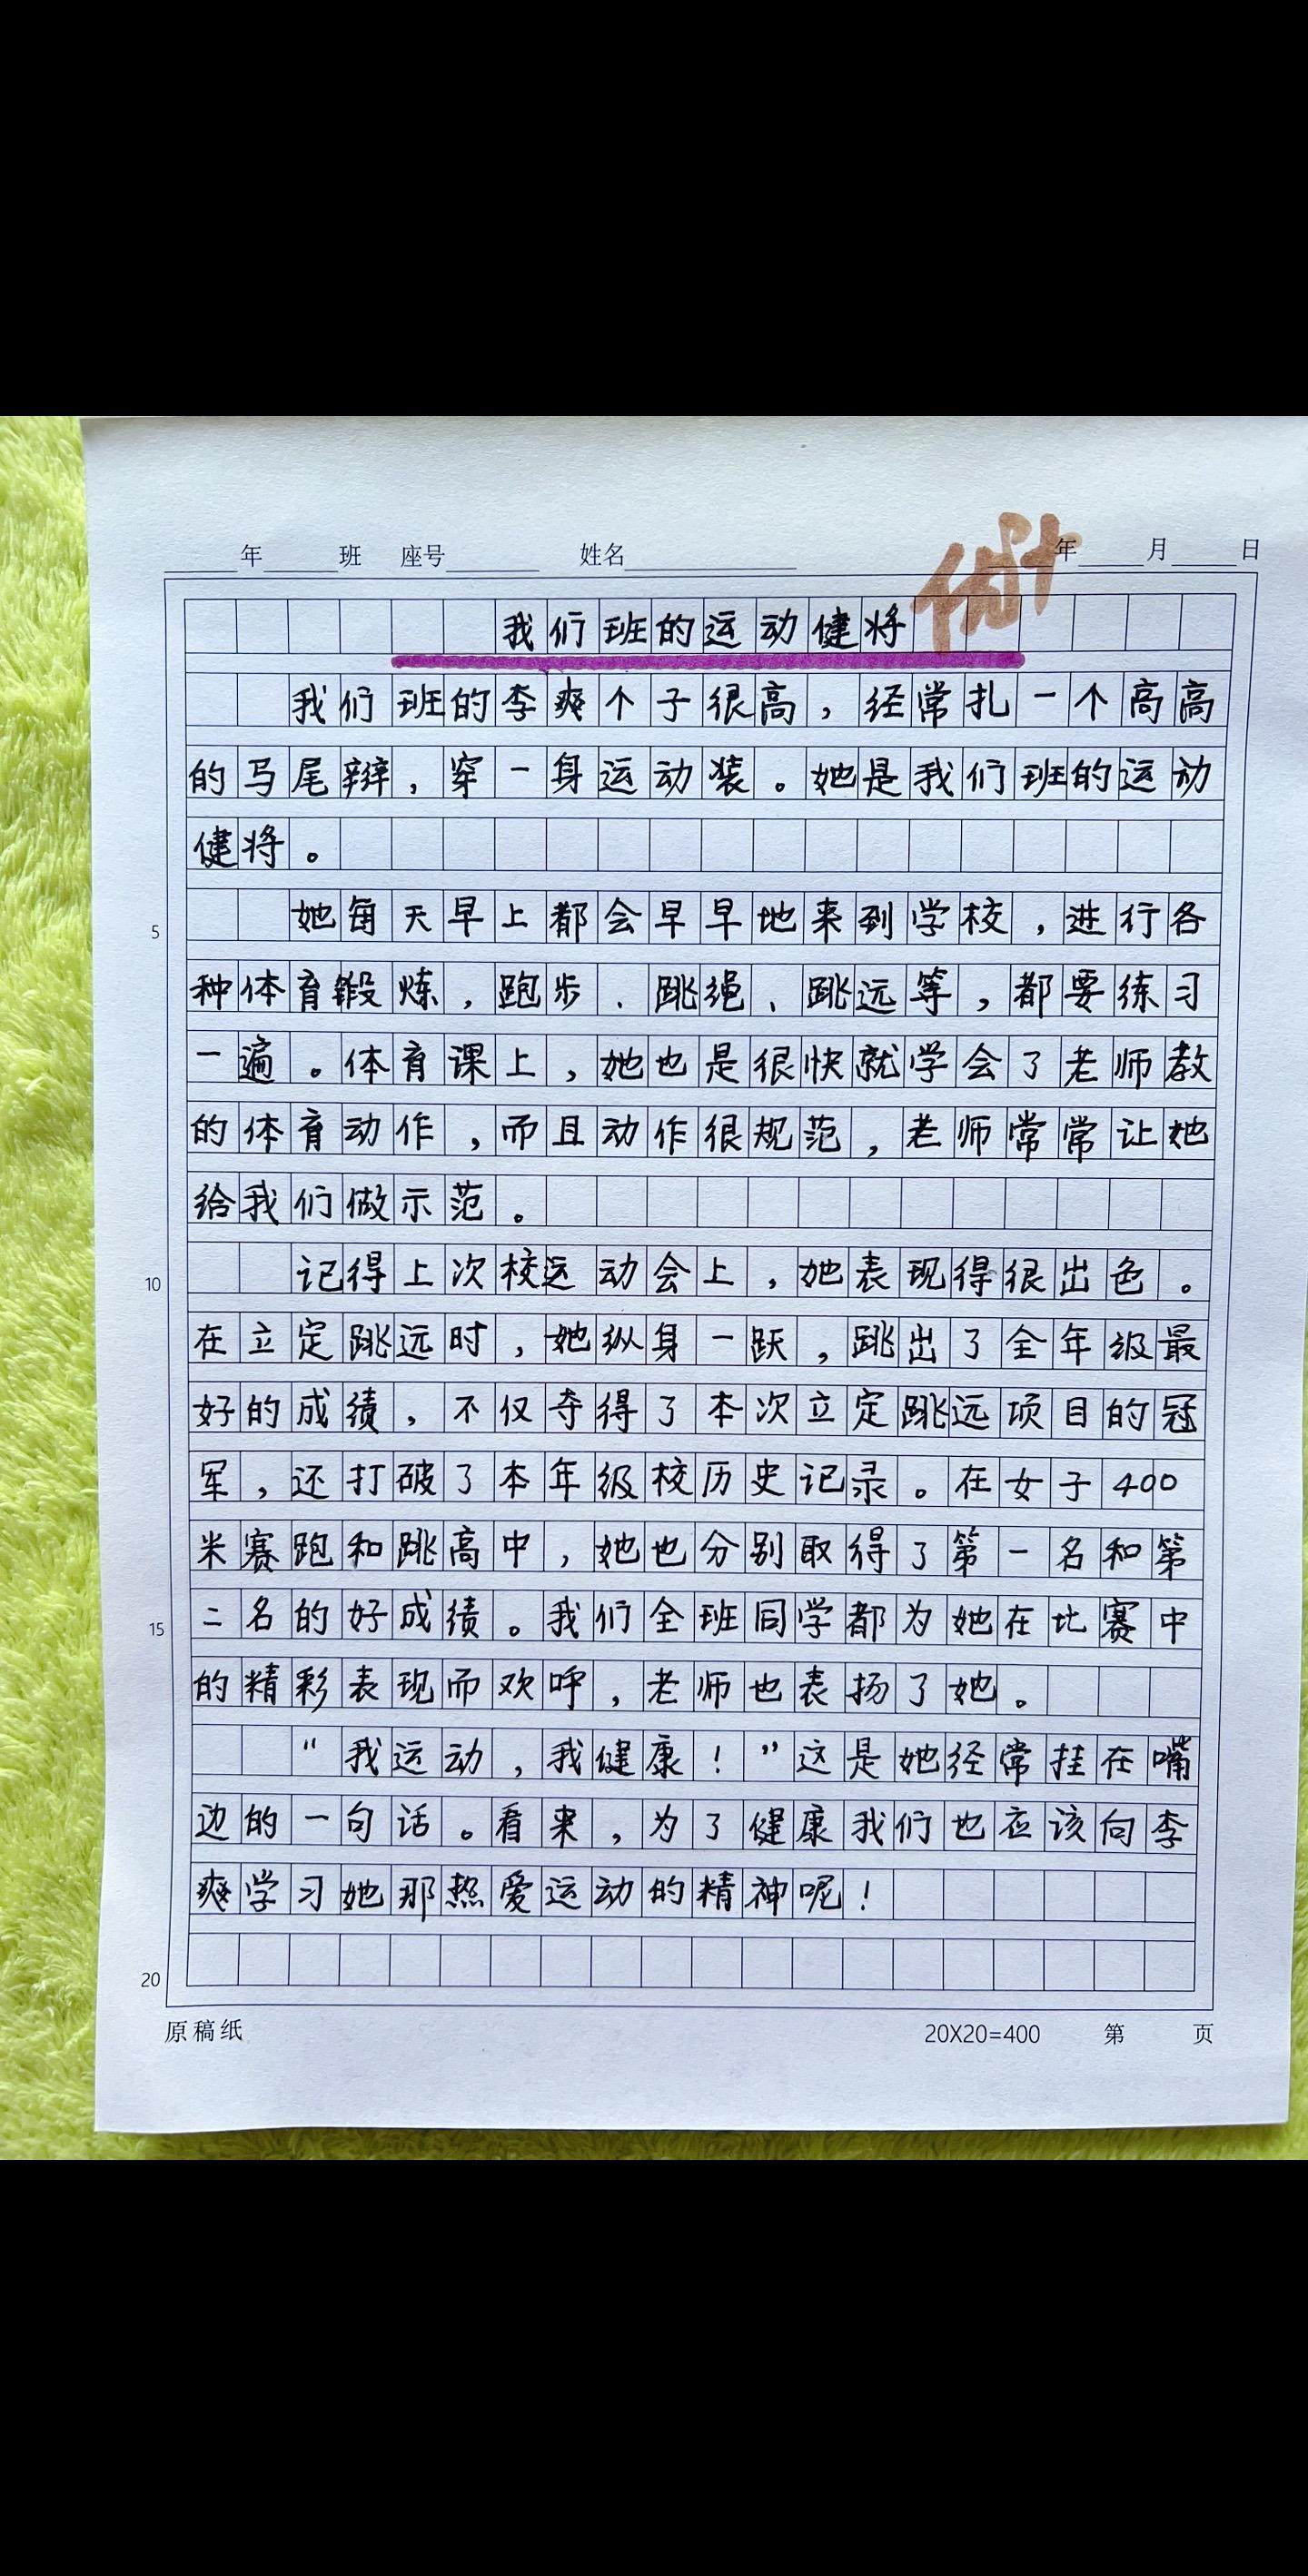 年 班 座号 姓名 年 月 日
优+
我们班的运动健将
我们班的李爽个子很高，经常扎一个高高
的马尾辫，穿一身运动装。她是我们班的运动
健将。
她每天早上都会早早地来到学校，进行各
5
种体育锻炼，跑步、跳绳、跳远等，都要练习
一遍。体育课上，她也是很快就学会了老师教
的体育动作，而且动作很规范，老师常常让她
给我们做示范。
记得上次校运动会上，她表现得很出色。
10
在立定跳远时，她纵身一跃，跳出了全年级最
好的成绩，不仅夺得了本次立定跳远项目的冠
军，还打破了本年级校历史记录。在女子400
米赛跑和跳高中，她也分别取得了第一名和第
二名的好成绩。我们全班同学都为她在比赛中
15
的精彩表现而欢呼，老师也表扬了她。
“我运动，我健康！”这是她经常挂在嘴
边的一句话。看来，为了健康我们也应该向李
爽学习她那热爱运动的精神呢！
20
原稿纸 20X20=400 第 页